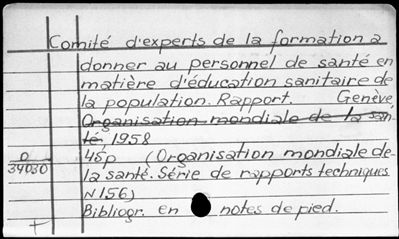 Comité d'experts de la formation a
donner au personnel de santé en
matière d'éducation sanitaire de
la population. Rapport. Genève,
Organisation mondiale de la san-
té, 1958
0 45p (Organisation mondiale de
34030 la santé. Série de rapports techniques
N156)
Bibliogr. en notes de pied.